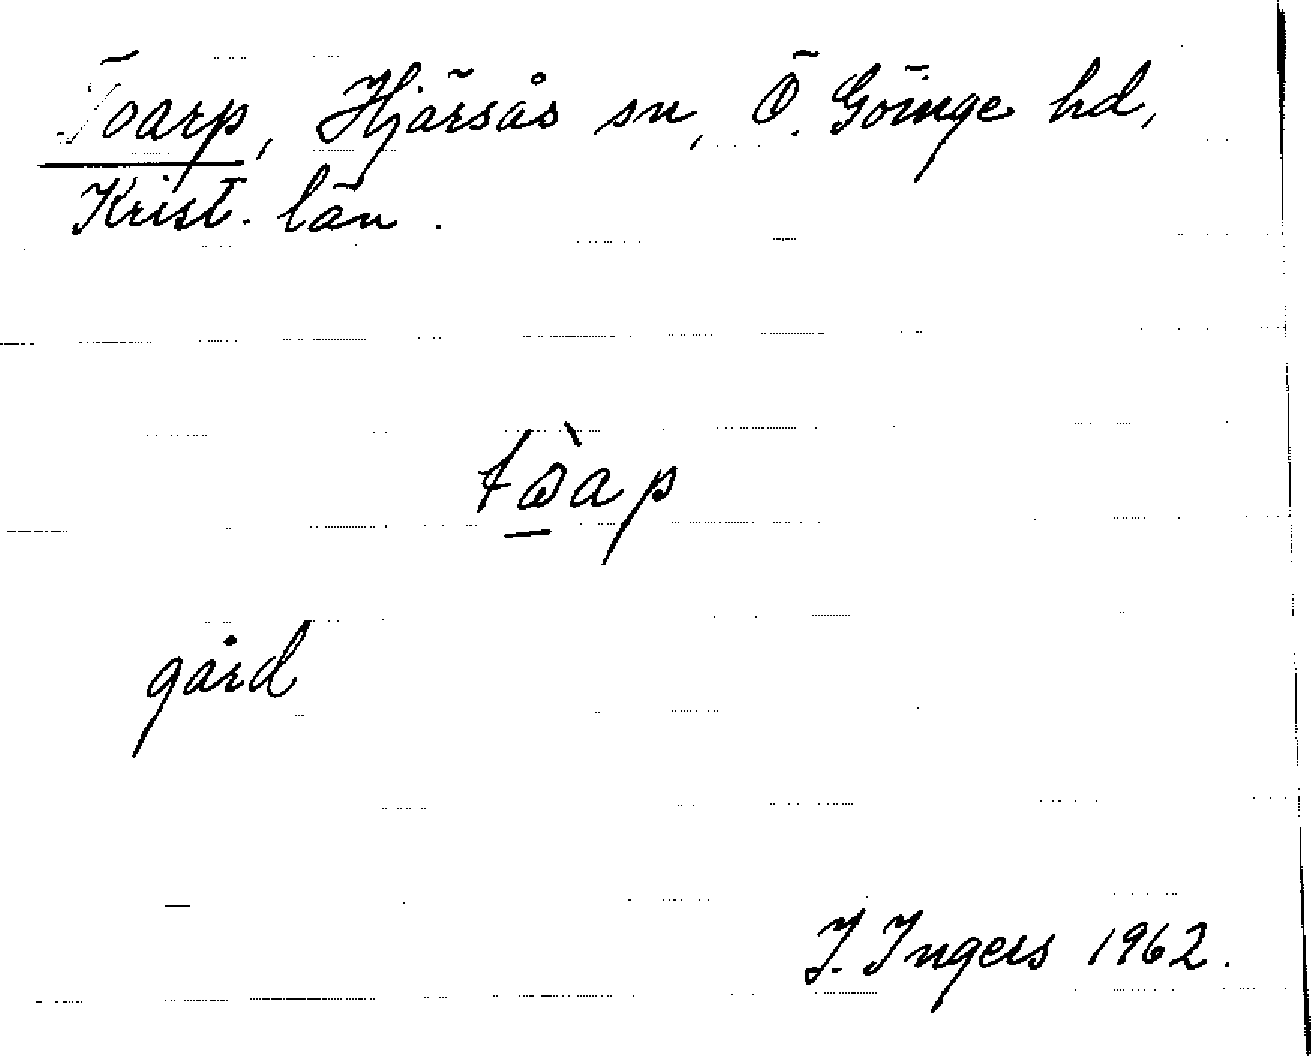 Toarp, Hjärsås sn, Ö. Göinge hd,
Krist. län.
gård
I. Ingers 1962.